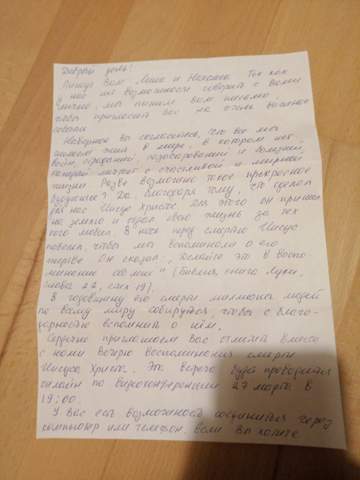 Добрый день!
Пишут Вам Лена и Наталия. Так как
у нас нет возможности говорить с Вами
лично, мы пишем Вам письмо,
чтобы пригласить Вас на очень важное
событие.
Наверное вы согласитесь, что все мы
хотели жить в мире, в котором нет
войн, страданий, разочарований и болезней,
каждый мечтает о счастливой и мирной
жизни. Разве возможно такое прекрасное
будущее? Да, благодаря тому, что сделал
для нас Иисус Христос. Для этого он пришел
на землю и отдал свою жизнь за тех
кого любил. В ночь перед смертью Иисус
повелел, чтобы мы вспоминали о его
жертве. Он сказал: „Делайте это в воспо-
минание обо мне" (Библия, книга Луки,
глава 22, стих 19).
В годовщину его смерти миллионы людей
по всему миру собираются, чтобы с благо-
дарностью вспомнить о нём.
Сердечно приглашаем Вас отметить вместе
с нами вечерю воспоминания смерти
Иисуса Христа. Эта вечеря будет проводится
онлайн по видеоконференции 27 марта в
19:00.
У Вас есть возможность соединится через
компьютер или телефон. Если Вы хотите